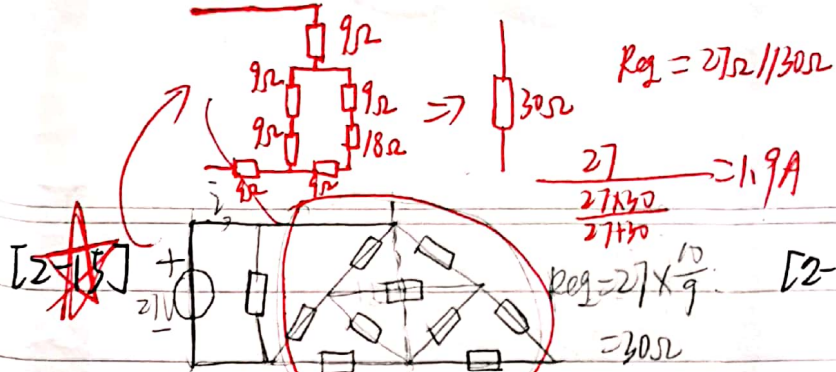 9Ω
9Ω 9Ω
9Ω 18Ω
9Ω 9Ω
=> 30Ω
Req = 27Ω//30Ω
27
27×30
27+30
=1.9A
i
[2-15]
+
27V
-
Req=27×10/9
=30Ω
[2-